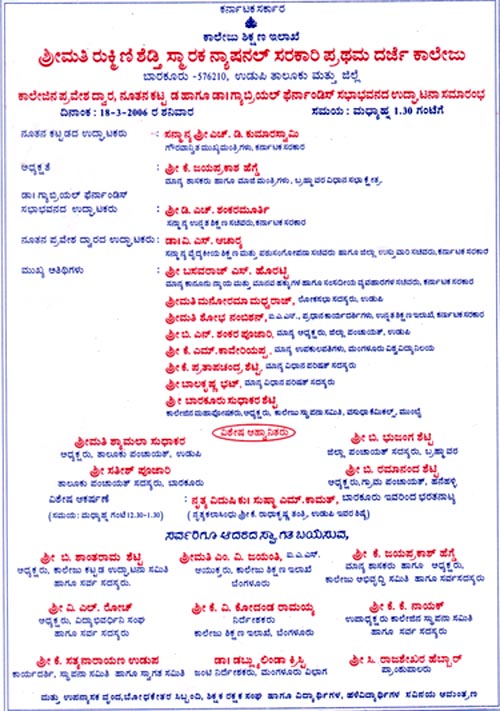 ಕರ್ನಾಟಕ ಸರಕಾರ
ಕಾಲೇಜು ಶಿಕ್ಷಣ ಇಲಾಖೆ
ಶ್ರೀಮತಿ ರುಕ್ಮಿಣಿ ಶೆಡ್ತಿ ಸ್ಮಾರಕ ನ್ಯಾಷನಲ್ ಸರಕಾರಿ ಪ್ರಥಮ ದರ್ಜೆ ಕಾಲೇಜು
ಬಾರಕೂರು -576210, ಉಡುಪಿ ತಾಲೂಕು ಮತ್ತು ಜಿಲ್ಲೆ
ಕಾಲೇಜಿನ ಪ್ರವೇಶ ದ್ವಾರ, ನೂತನ ಕಟ್ಟಡ ಹಾಗೂ ಡಾ॥ ಗ್ಯಾಬ್ರಿಯಲ್ ಫೆರ್ನಾಂಡಿಸ್ ಸಭಾಭವನದ ಉದ್ಘಾಟನಾ ಸಮಾರಂಭ
ದಿನಾಂಕ : 18-3-2006 ರ ಶನಿವಾರ ಸಮಯ : ಮಧ್ಯಾಹ್ನ 1.30 ಗಂಟೆಗೆ
ನೂತನ ಕಟ್ಟಡದ ಉದ್ಘಾಟಕರು : ಸನ್ಮಾನ್ಯ ಶ್ರೀ ಎಚ್. ಡಿ. ಕುಮಾರಸ್ವಾಮಿ
ಗೌರವಾನ್ವಿತ ಮುಖ್ಯಮಂತ್ರಿಗಳು, ಕರ್ನಾಟಕ ಸರಕಾರ
ಅಧ್ಯಕ್ಷತೆ : ಶ್ರೀ ಕೆ. ಜಯಪ್ರಕಾಶ ಹೆಗ್ಡೆ
ಮಾನ್ಯ ಶಾಸಕರು ಹಾಗೂ ಮಾಜಿ ಮಂತ್ರಿಗಳು, ಬ್ರಹ್ಮಾವರ ವಿಧಾನ ಸಭಾ ಕ್ಷೇತ್ರ.
ಡಾ॥ ಗ್ಯಾಬ್ರಿಯಲ್ ಫೆರ್ನಾಂಡಿಸ್
ಸಭಾಭವನದ ಉದ್ಘಾಟಕರು : ಶ್ರೀ ಡಿ. ಎಚ್. ಶಂಕರಮೂರ್ತಿ
ಸನ್ಮಾನ್ಯ ಉನ್ನತ ಶಿಕ್ಷಣ ಸಚಿವರು, ಕರ್ನಾಟಕ ಸರಕಾರ
ನೂತನ ಪ್ರವೇಶ ದ್ವಾರದ ಉದ್ಘಾಟಕರು : ಡಾ॥ ವಿ. ಎಸ್. ಆಚಾರ್ಯ
ಸನ್ಮಾನ್ಯ ವೈದ್ಯಕೀಯ ಶಿಕ್ಷಣ ಮತ್ತು ಪಶುಸಂಗೋಪನಾ ಸಚಿವರು ಹಾಗೂ ಜಿಲ್ಲಾ ಉಸ್ತುವಾರಿ ಸಚಿವರು, ಕರ್ನಾಟಕ ಸರಕಾರ
ಮುಖ್ಯ ಅತಿಥಿಗಳು : ಶ್ರೀ ಬಸವರಾಜ್ ಎಸ್. ಹೊರಟ್ಟಿ
ಮಾನ್ಯ ಕಾನೂನು ನ್ಯಾಯ ಮತ್ತು ಮಾನವ ಹಕ್ಕುಗಳ ಹಾಗೂ ಸಂಸದೀಯ ವ್ಯವಹಾರಗಳ ಸಚಿವರು, ಕರ್ನಾಟಕ ಸರಕಾರ
ಶ್ರೀಮತಿ ಮನೋರಮಾ ಮಧ್ವರಾಜ್, ಲೋಕಸಭಾ ಸದಸ್ಯರು, ಉಡುಪಿ
ಶ್ರೀಮತಿ ಶೋಭ ನಂಬಿಶನ್, ಐ.ಎ.ಎಸ್., ಪ್ರಧಾನ ಕಾರ್ಯದರ್ಶಿಗಳು, ಉನ್ನತ ಶಿಕ್ಷಣ ಇಲಾಖೆ, ಕರ್ನಾಟಕ ಸರಕಾರ
ಶ್ರೀ ಬಿ. ಎನ್. ಶಂಕರ ಪೂಜಾರಿ, ಮಾನ್ಯ ಅಧ್ಯಕ್ಷರು, ಜಿಲ್ಲಾ ಪಂಚಾಯತ್, ಉಡುಪಿ
ಶ್ರೀ ಕೆ. ಎಮ್. ಕಾವೇರಿಯಪ್ಪ, ಮಾನ್ಯ ಉಪಕುಲಪತಿಗಳು, ಮಂಗಳೂರು ವಿಶ್ವವಿದ್ಯಾನಿಲಯ
ಶ್ರೀ ಕೆ. ಪ್ರತಾಪಚಂದ್ರ ಶೆಟ್ಟಿ, ಮಾನ್ಯ ವಿಧಾನ ಪರಿಷತ್ ಸದಸ್ಯರು
ಶ್ರೀ ಬಾಲಕೃಷ್ಣ ಭಟ್, ಮಾನ್ಯ ವಿಧಾನ ಪರಿಷತ್ ಸದಸ್ಯರು
ಶ್ರೀ ಬಾರಕೂರು ಸುಧಾಕರ ಶೆಟ್ಟಿ
ಕಾಲೇಜಿನ ಮಹಾಪೋಷಕರು, ಅಧ್ಯಕ್ಷರು, ಕಾಲೇಜು ಸ್ಥಾಪನಾ ಸಮಿತಿ, ವಸುಧಾ ಕೆಮಿಕಲ್ಸ್, ಮುಂಬೈ
ವಿಶೇಷ ಆಹ್ವಾನಿತರು
ಶ್ರೀಮತಿ ಶ್ಯಾಮಲಾ ಸುಧಾಕರ ಶ್ರೀ ಬಿ. ಭುಜಂಗ ಶೆಟ್ಟಿ
ಅಧ್ಯಕ್ಷರು, ತಾಲೂಕು ಪಂಚಾಯತ್, ಉಡುಪಿ ಜಿಲ್ಲಾ ಪಂಚಾಯತ್ ಸದಸ್ಯರು, ಬ್ರಹ್ಮಾವರ
ಶ್ರೀ ಸತೀಶ್ ಪೂಜಾರಿ ಶ್ರೀ ಬಿ. ರಮಾನಂದ ಶೆಟ್ಟಿ
ತಾಲೂಕು ಪಂಚಾಯತ್ ಸದಸ್ಯರು, ಬಾರಕೂರು ಅಧ್ಯಕ್ಷರು, ಗ್ರಾಮ ಪಂಚಾಯತ್, ಹನೆಹಳ್ಳಿ
ವಿಶೇಷ ಆಕರ್ಷಣೆ : ನೃತ್ಯ ವಿದುಷಿ ಕು। ಸುಷ್ಮಾ ಎಮ್. ಕಾಮತ್, ಬಾರಕೂರು ಇವರಿಂದ ಭರತನಾಟ್ಯ
(ಸಮಯ: ಮಧ್ಯಾಹ್ನ ಗಂಟೆ 12.30-1.30) (ನೃತ್ಯಕಲಾಸಿಂಧು ಶ್ರೀ ಕೆ. ರಾಧಾಕೃಷ್ಣ ತಂತ್ರಿ, ಉಡುಪಿ ಇವರ ಶಿಷ್ಯೆ)
ಸರ್ವರಿಗೂ ಆದರದ ಸ್ವಾಗತ ಬಯಸುವ,
ಶ್ರೀ ಬಿ. ಶಾಂತರಾಮ ಶೆಟ್ಟಿ ಶ್ರೀಮತಿ ಎಂ. ವಿ. ಜಯಂತಿ, ಐ.ಎ.ಎಸ್. ಶ್ರೀ ಕೆ. ಜಯಪ್ರಕಾಶ್ ಹೆಗ್ಡೆ
ಅಧ್ಯಕ್ಷರು, ಕಾಲೇಜು ಕಟ್ಟಡ ಉದ್ಘಾಟನಾ ಸಮಿತಿ ಆಯುಕ್ತರು, ಕಾಲೇಜು ಶಿಕ್ಷಣ ಇಲಾಖೆ ಮಾನ್ಯ ಶಾಸಕರು ಹಾಗೂ ಅಧ್ಯಕ್ಷರು,
ಹಾಗೂ ಸರ್ವ ಸದಸ್ಯರು. ಬೆಂಗಳೂರು ಕಾಲೇಜು ಅಭಿವೃದ್ಧಿ ಸಮಿತಿ ಹಾಗೂ ಸರ್ವಸದಸ್ಯರು
ಶ್ರೀ ವಿ. ಎಲ್. ರೋಚ್ ಶ್ರೀ ಕೆ. ವಿ. ಕೋದಂಡ ರಾಮಯ್ಯ ಶ್ರೀ ಕೆ. ಕೆ. ನಾಯಕ್
ಅಧ್ಯಕ್ಷರು, ವಿದ್ಯಾಭಿವರ್ಧಿನಿ ಸಂಘ ನಿರ್ದೇಶಕರು ಉಪಾಧ್ಯಕ್ಷರು ಕಾಲೇಜಿನ ಸ್ಥಾಪನಾ ಸಮಿತಿ
ಹಾಗೂ ಸರ್ವ ಸದಸ್ಯರು. ಕಾಲೇಜು ಶಿಕ್ಷಣ ಇಲಾಖೆ, ಬೆಂಗಳೂರು ಹಾಗೂ ಸರ್ವ ಸದಸ್ಯರು
ಶ್ರೀ ಕೆ. ಸತ್ಯನಾರಾಯಣ ಉಡುಪ ಡಾ॥ ಡಬ್ಲ್ಯುಲಿಂಡಾ ಕ್ರಿಸ್ಟಿ ಶ್ರೀ ಸಿ. ರಾಜಶೇಖರ ಹೆಬ್ಬಾರ್
ಕಾರ್ಯದರ್ಶಿ, ಸ್ಥಾಪನಾ ಸಮಿತಿ ಹಾಗೂ ಸ್ವಾಗತ ಸಮಿತಿ ಜಂಟಿ ನಿರ್ದೇಶಕರು, ಮಂಗಳೂರು ವಿಭಾಗ ಪ್ರಾಂಶುಪಾಲರು
ಮತ್ತು ಉಪನ್ಯಾಸಕ ವೃಂದ, ಬೋಧಕೇತರ ಸಿಬ್ಬಂದಿ, ಶಿಕ್ಷಕ ರಕ್ಷಕ ಸಂಘ ಹಾಗೂ ವಿದ್ಯಾರ್ಥಿಗಳ, ಹಳೆವಿದ್ಯಾರ್ಥಿಗಳ ಸವಿನಯ ಆಮಂತ್ರಣ